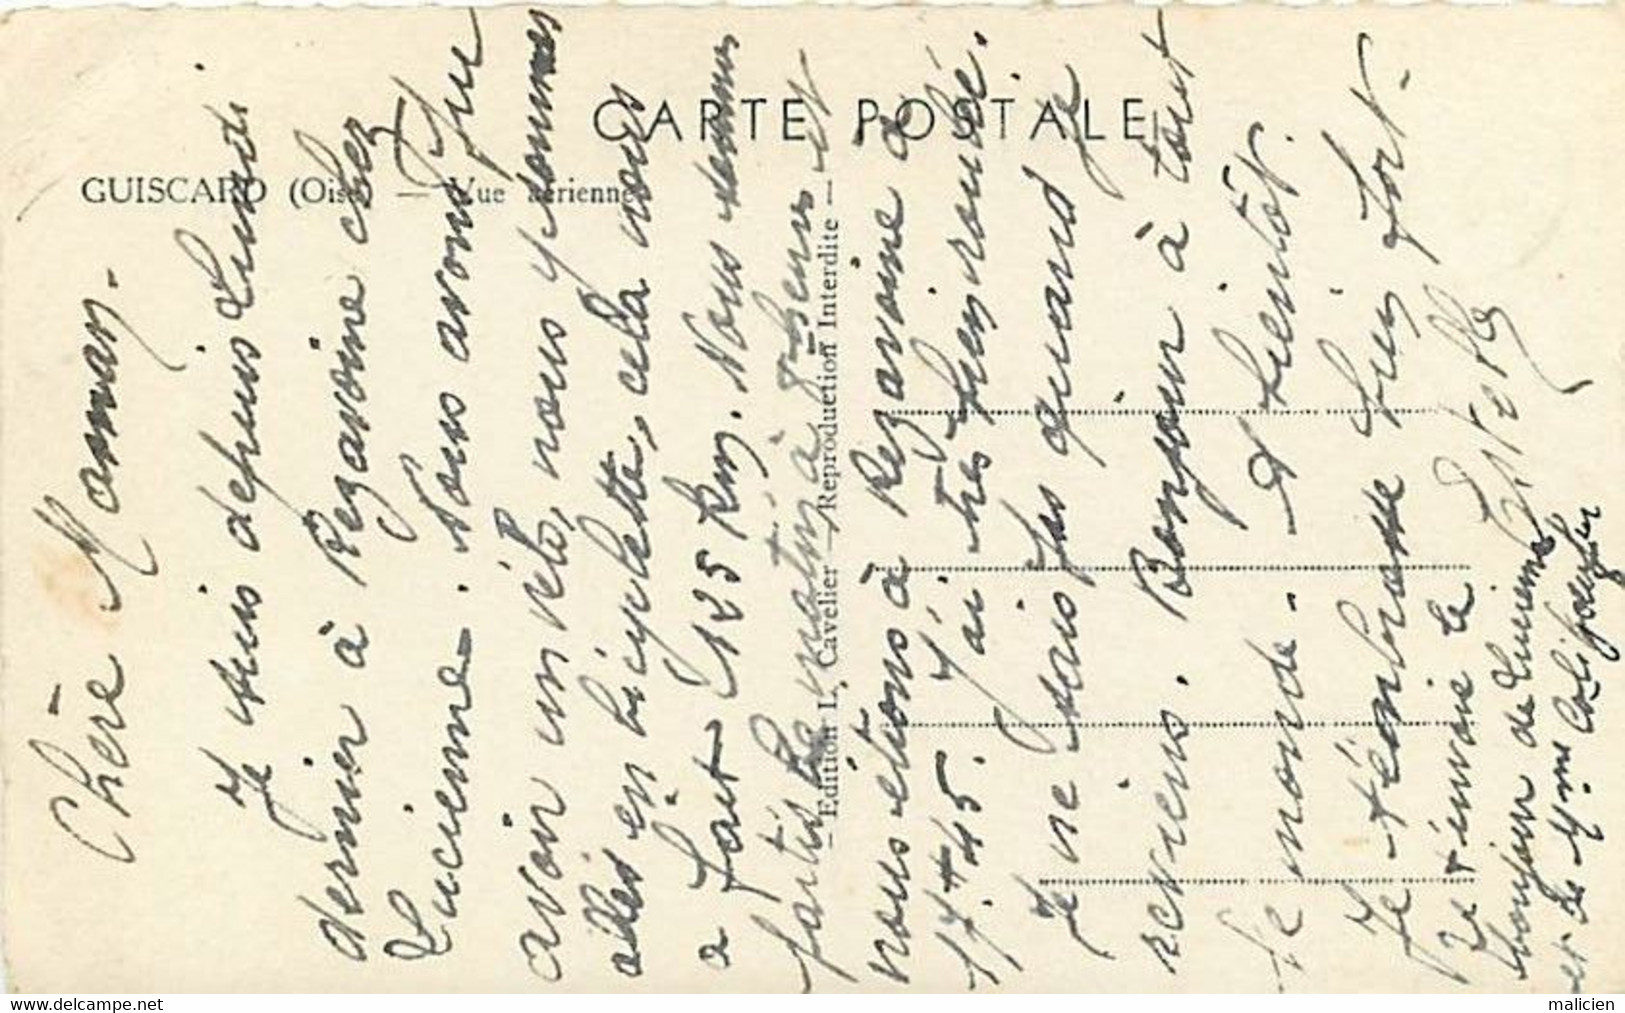 CARTE POSTALE
GUISCARD (Oise) — Vue aérienne
— Edition L. Cavelier — Reproduction Interdite —
Chère Maman.
Je suis depuis Lundi
dernier à Rezavoine chez
Lucienne. Nous avons pu
avoir un vélo, nous y sommes
allés en bicyclette, cela nous
a fait 125 km. Nous sommes
partis le matin à 8 heures et
nous étions à Rezavoine à
17 H 45. J'ai très bien roulé.
Je ne sais pas quand je
reviens. Bonjour à tout
le monde. A bientôt.
Je t'embrasse bien fort.
Estelle
Je t'envoie le
bonjour de Lucienne
et de Mme
malicien